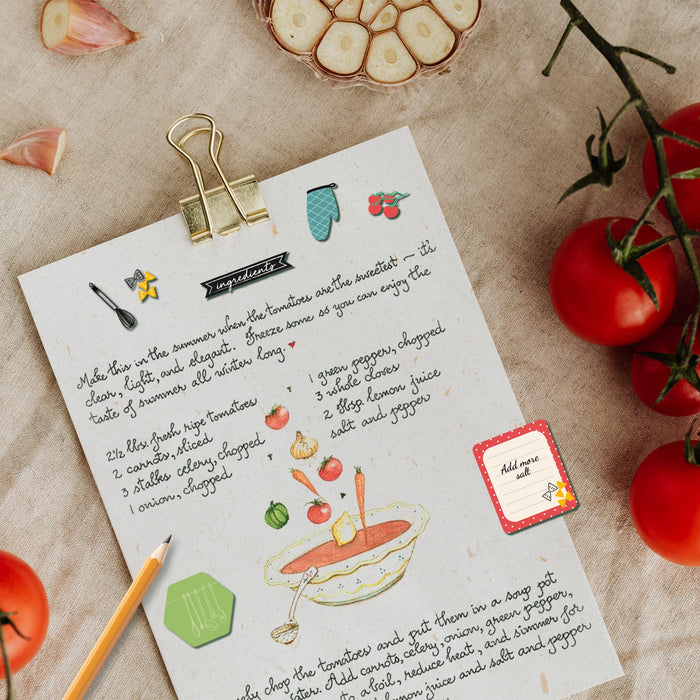 ingredients
Make this in the summer when the tomatoes are the sweetest ~ it's
clear, light, and elegant. Freeze some so you can enjoy the
taste of summer all winter long.
2½ lbs. fresh ripe tomatoes
2 carrots, sliced
3 stalks celery, chopped
1 onion, chopped
1 green pepper, chopped
3 whole cloves
2 tbsp. lemon juice
salt and pepper
Add more
salt.
chop the tomatoes and put them in a soup pot
Add carrots, celery, onion, green pepper,
to a boil, reduce heat, and simmer for
lemon juice and salt and pepper